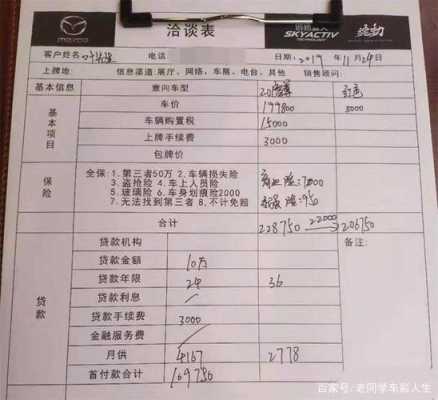 mazda 洽谈表 SKYACTIV TECHNOLOGY
客户姓名 电话 日期: 2019 年 11月24日
上牌地: 信息渠道: 展厅, 网络, 车展, 电台, 其他 销售顾问:
基本信息 意向车型 2.0
基本项目 车价 199800 8000
车辆购置税 15000
上牌手续费 3000
包牌价
保险 全保: 1.第三者50万 2.车辆损失险
3.盗抢险 4.车上人员险
5.玻璃险 6.车身划痕险2000
7.无法找到第三者 8.不计免赔
商业险:7000
交强险:950
合计 228750 22000 → 206750
贷款 贷款机构 备注:
贷款金额 10万
贷款年限 24 36
贷款利息
贷款手续费 3000
金融服务费
月供 4167 2778
首付款合计 109750
百家号/老同学车彭人生